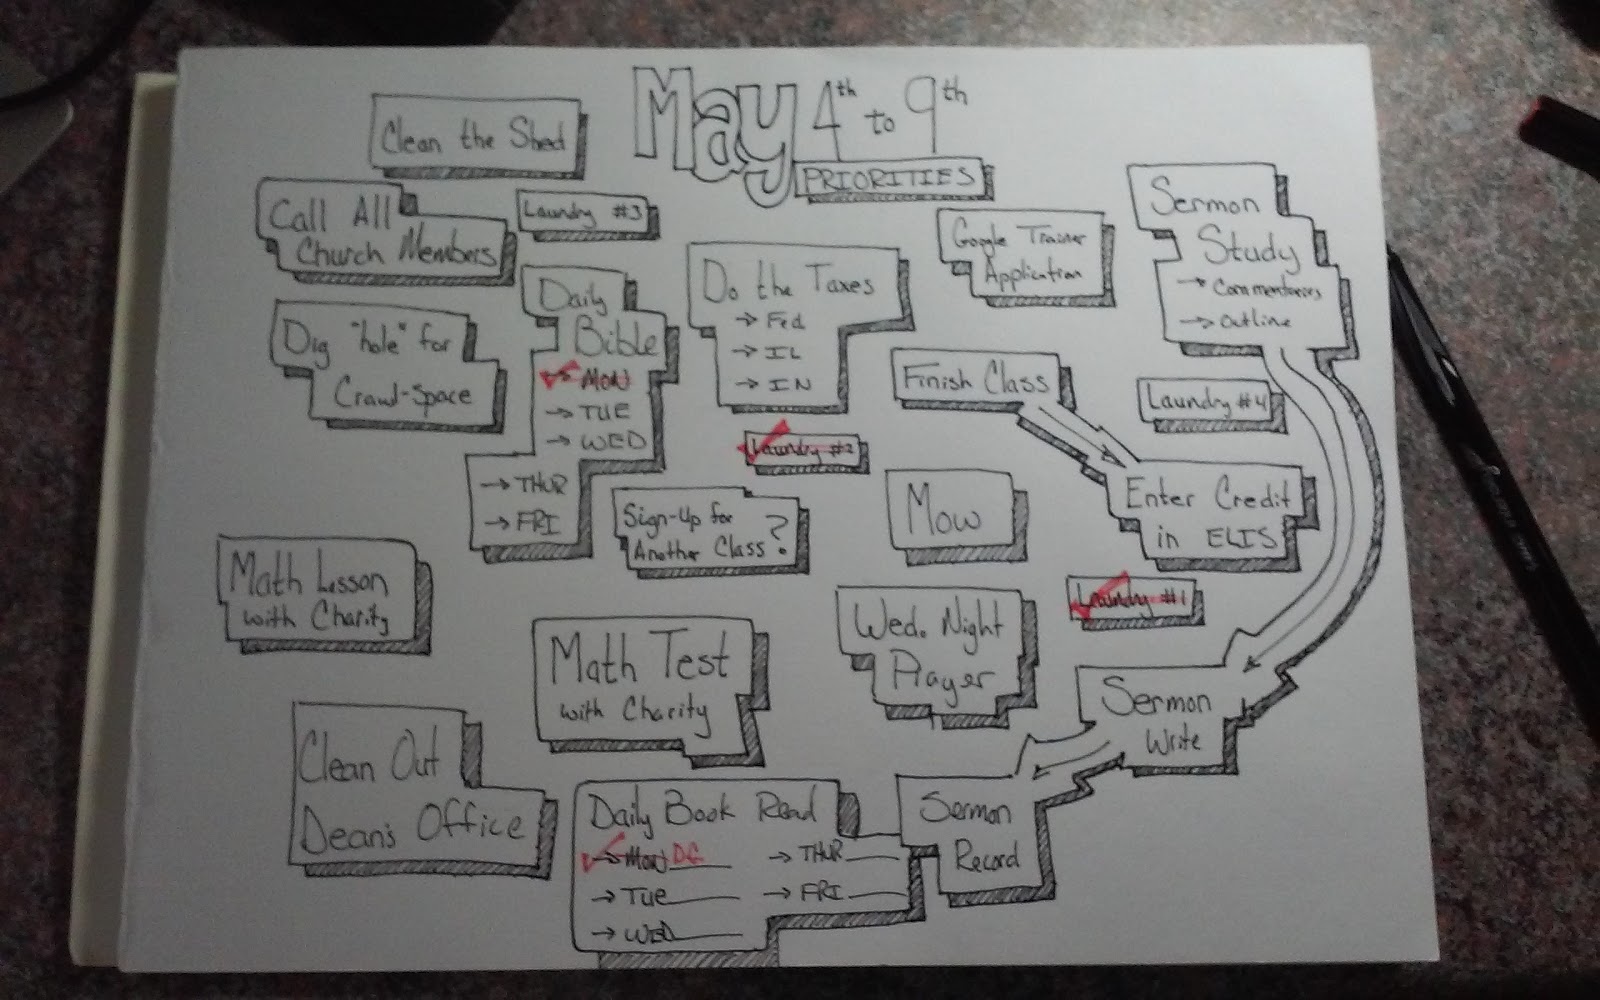 May 4th to 9th
PRIORITIES
Clean the Shed
Call All
Church Members
Laundry #3
Google Trainer
Application
Sermon
Study
→ Commentaries
→ Outline
Daily
Bible
→ MON
→ TUE
→ WED
→ THUR
→ FRI
Do the Taxes
→ Fed
→ IL
→ IN
Dig "hole" for
Crawl-Space
Finish Class
Laundry #4
Laundry #2
Enter Credit
in ELIS
Sign-Up for
Another Class?
Mow
Math Lesson
with Charity
Laundry #1
Wed. Night
Prayer
Math Test
with Charity
Sermon
Write
Clean Out
Dean's Office
Daily Book Read
→ MON DC
→ TUE
→ WED
→ THUR
→ FRI
Sermon
Record